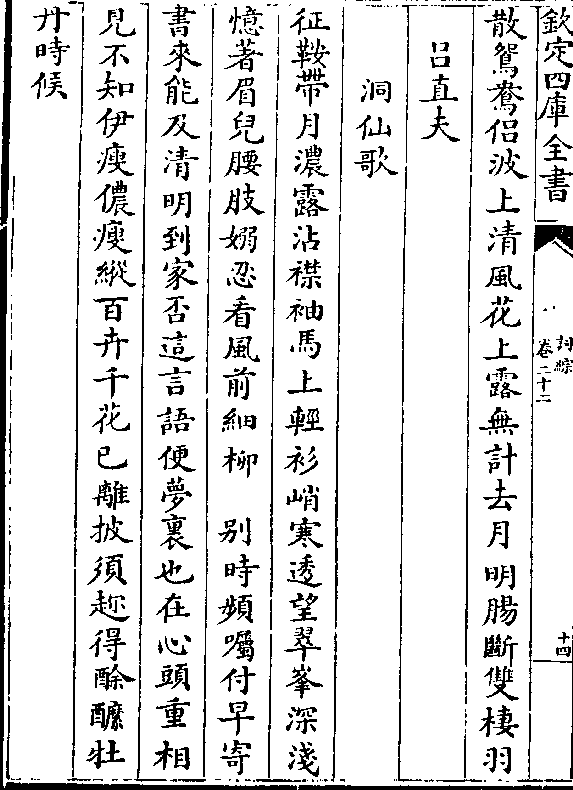 欽定四庫全書
詞綜
卷二十二
十四
散鴛鴦侣波上清風花上露無計去月明腸斷雙棲羽
吕直夫
洞仙歌
征鞍帶月濃露沾襟袖馬上輕衫峭寒透望翠峯深淺
憶著眉兒腰肢嫋忍看風前細柳 别時頻囑付早寄
書來能及清明到家否這言語便夢裏也在心頭重相
見不知伊瘦儂瘦縱百卉千花已離披須趂得酴醿牡
丹時候